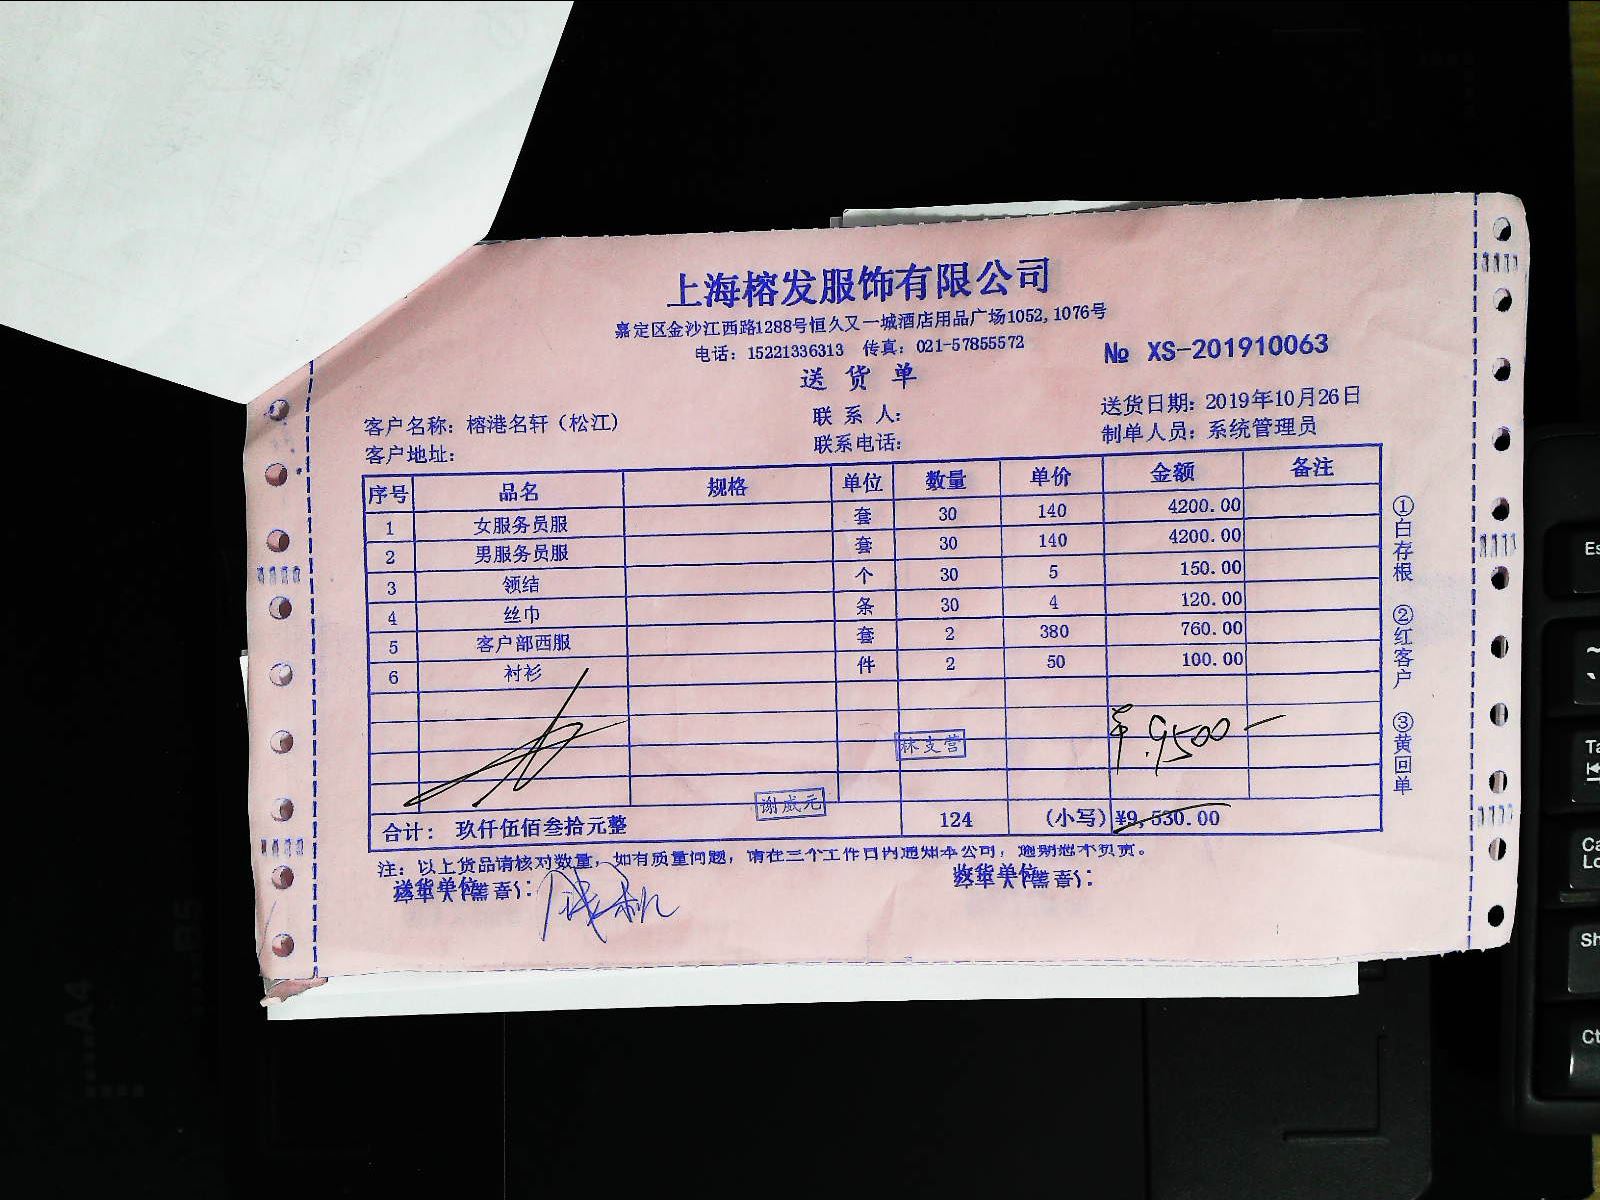 上海榕发服饰有限公司
嘉定区金沙江西路1288号恒久又一城酒店用品广场1052,1076号
电话：15221336313 传真：021-57855572
№ XS-201910063
送货单
客户名称：榕港名轩（松江） 联系人： 送货日期：2019年10月26日
客户地址： 联系电话： 制单人员：系统管理员
序号 品名 规格 单位 数量 单价 金额 备注
1 女服务员服 套 30 140 4200.00
2 男服务员服 套 30 140 4200.00
3 领结 个 30 5 150.00
4 丝巾 条 30 4 120.00
5 客户部西服 套 2 380 760.00
6 衬衫 件 2 50 100.00
林支营
¥.9500-
谢威元
合计： 玖仟伍佰叁拾元整 124 （小写） ¥9,530.00
注：以上货品请核对数量，如有质量问题，请在三个工作日内通知本公司，逾期恕不负责。
送货单位
收货单位
①白存根 ②红客户 ③黄回单
A4
B5
Es
~
Ta
Ca
Lo
Sh
Ct